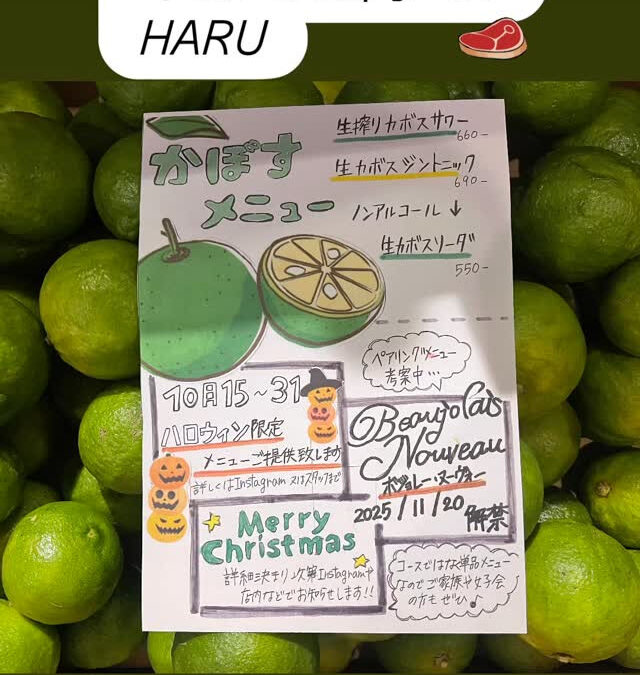 HARU
かぼす
メニュー
生搾りカボスサワー
660-
生カボスジントニック
690-
ノンアルコール ↓
生カボスソーダ
550-
ペアリングメニュー
考案中…
10月15~31
ハロウィン限定
メニューご提供致します
詳しくはInstagram 又はスタッフまで
Beaujolais
Nouveau
ボジョレー・ヌーヴォー
2025/11/20 解禁
Merry
Christmas
詳細決まり次第Instagramや
店内などでお知らせします!!
コースではなく単品メニュー
なのでご家族や女子会
の方もぜひ♪